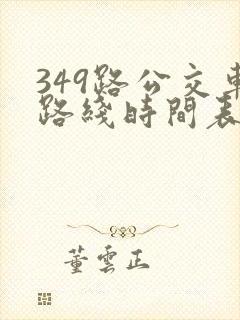 349路公交車
路綫時間表
董雲正